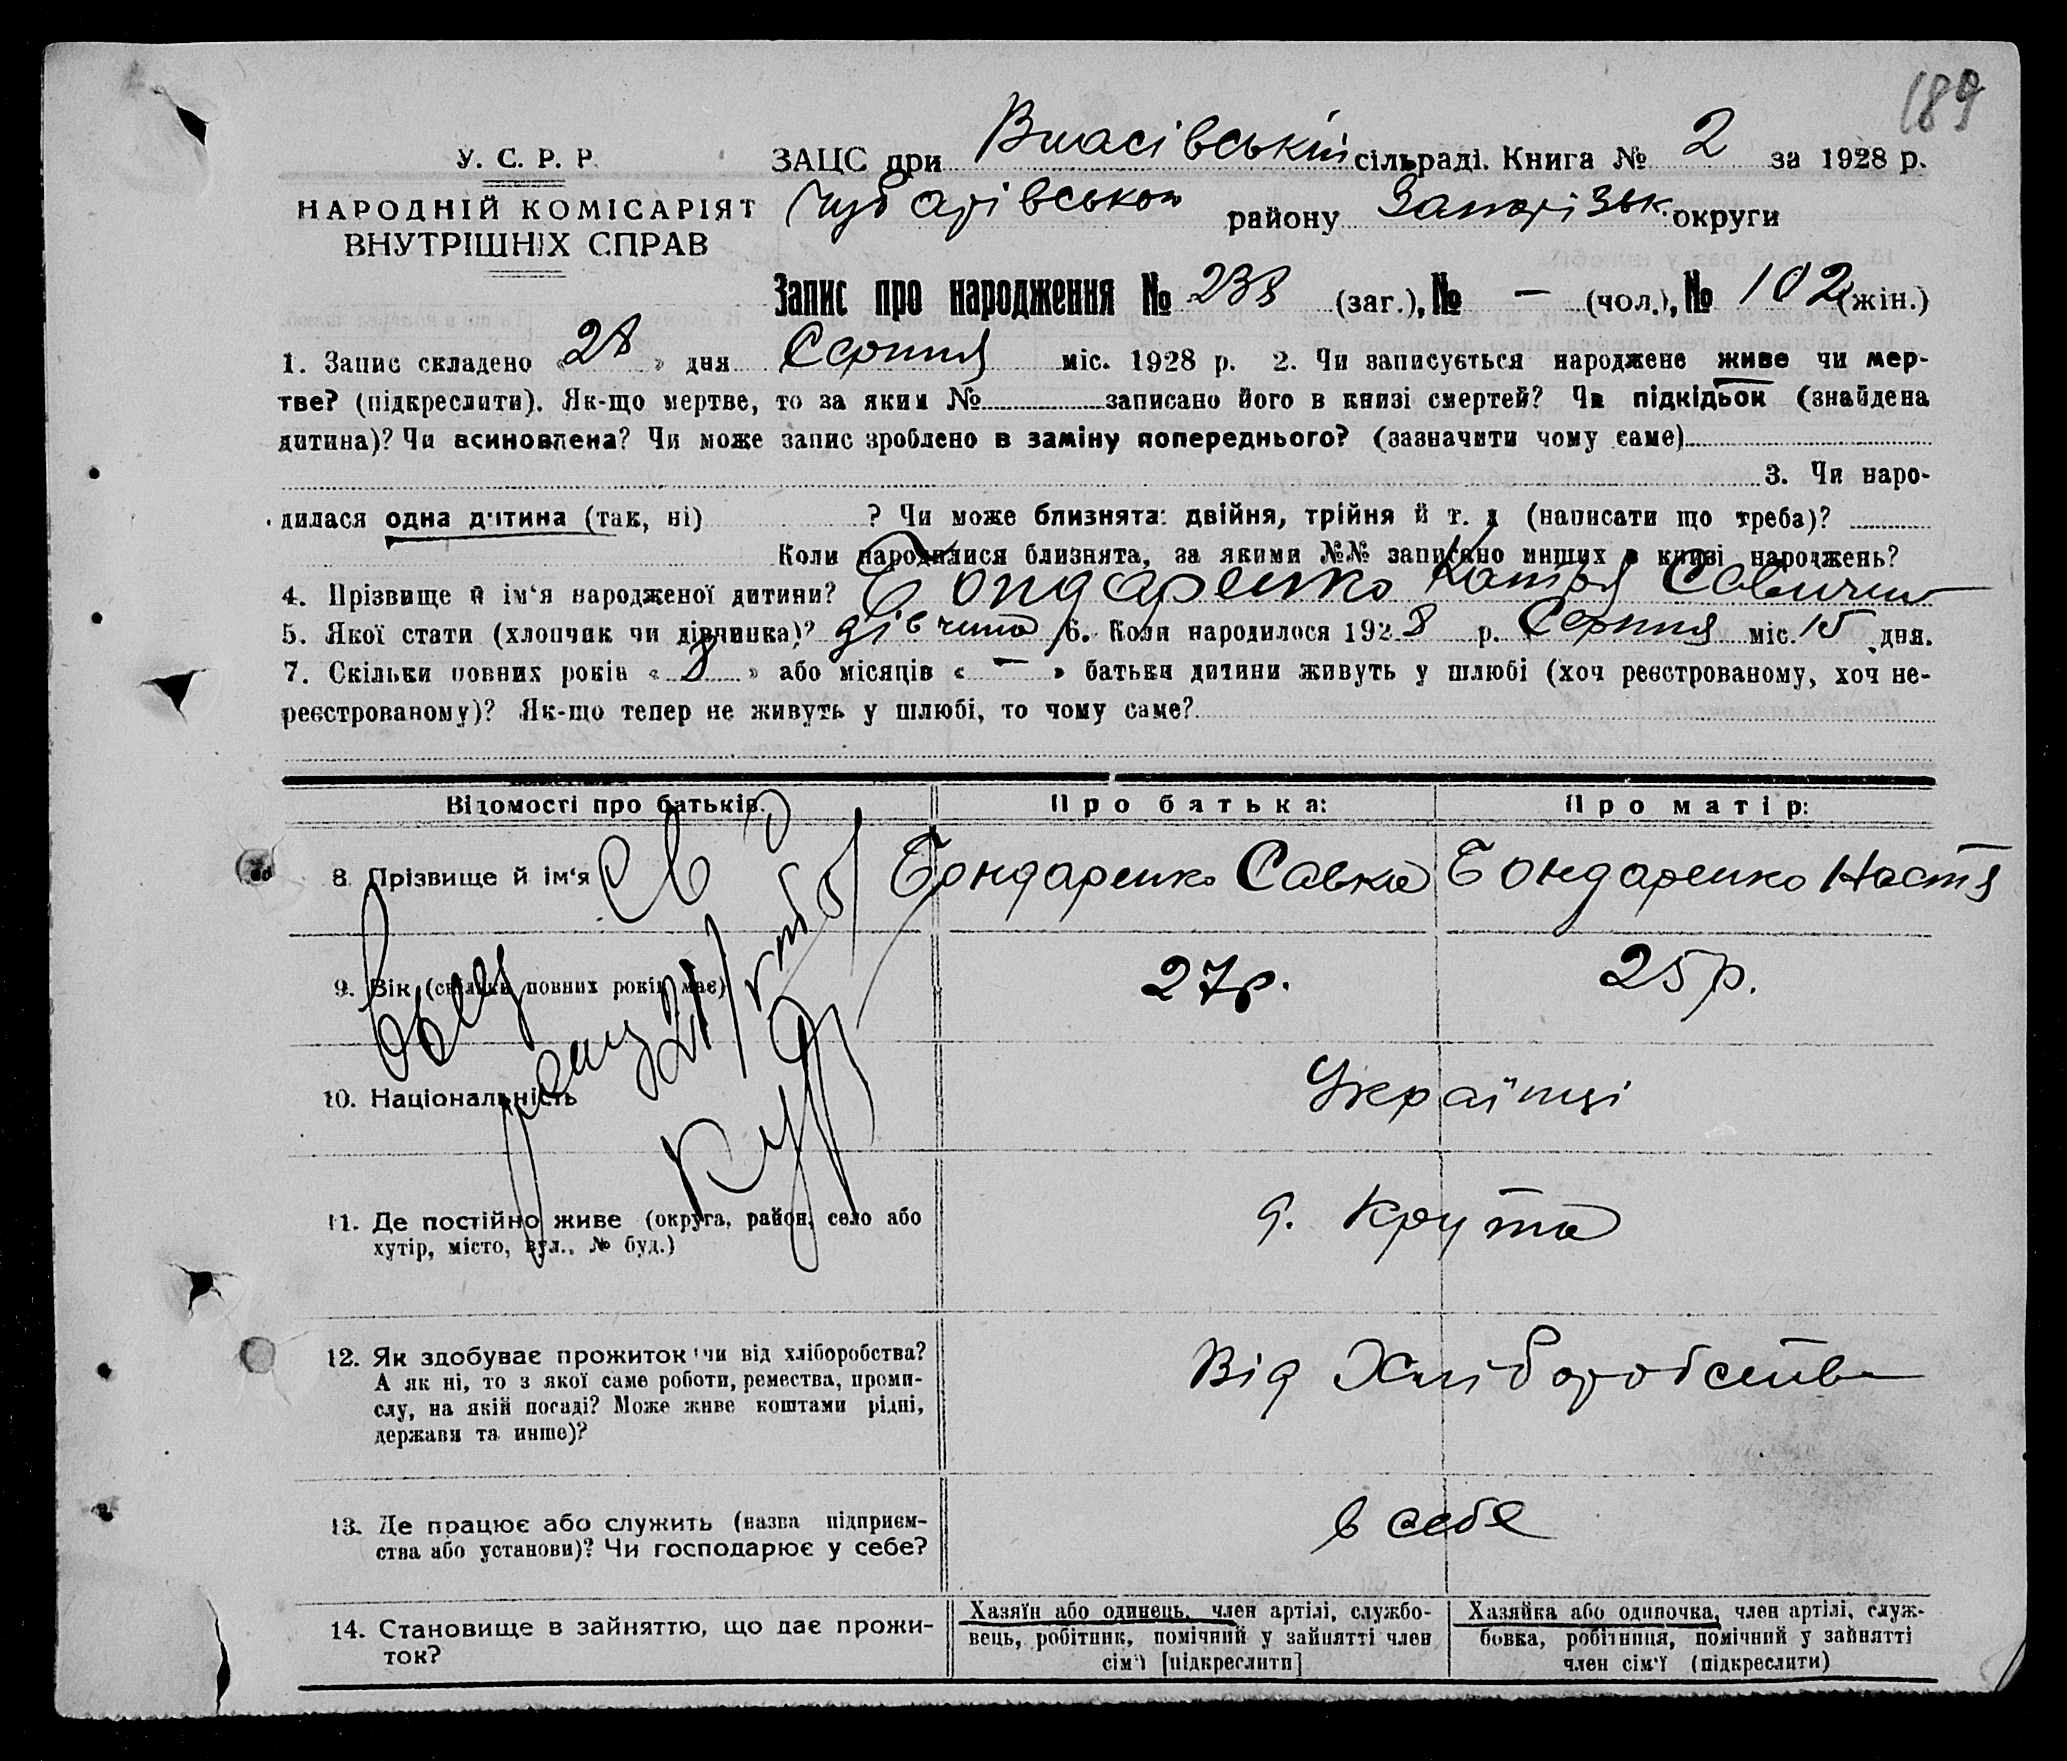 189
У. С. Р. Р.
НАРОДНІЙ КОМІСАРІЯТ
ВНУТРІШНІХ СПРАВ
ЗАЦС при Власівській сільраді. Книга № 2 за 1928 р.
Чубарівськом району Запоріжк. округи
Запис про народження № 238 (заг.), № — (чол.), № 102 (жін.)
1. Запис складено « 28 » дня Серпня міс. 1928 р. 2. Чи записується народжене живе чи мер-
тве? (підкреслити). Як-що мертве, то за яким № записано його в книзі смертей? Чи підкідьок (знайдена
дитина)? Чи всиновлена? Чи може запис зроблено в заміну попереднього? (зазначити чому саме)
3. Чи наро-
дилася одна дитина (так, ні) ? Чи може близнята: двійня, трійня й т. д (написати що треба)?
Коли народилися близнята, за якими №№ записано инших в книзі народжень?
4. Прізвище й ім'я народженої дитини? Бондаренко Катря Савична
5. Якої стати (хлопчик чи дівчинка)? дівчина 6. Коли народилося 1928 р. Серпня міс. 15 дня.
7. Скільки повних років « 8 » або місяців « — » батьки дитини живуть у шлюбі (хоч реєстрованому, хоч не-
реєстрованому)? Як-що тепер не живуть у шлюбі, то чому саме?
Відомості про батьків. Про батька: Про матір:
8. Прізвище й ім'я Бондаренко Савка Бондаренко Настя
9. Вік (скільки повних років має) 27р. 25р.
10. Національність Українці
11. Де постійно живе (округа, район, село або
хутір, місто, вул., № буд.)
д. Крута
12. Як здобуває прожиток чи від хліборобства?
А як ні, то з якої саме роботи, ремества, проми-
слу, на якій посаді? Може живе коштами рідні,
держави та инше)?
Від Хліборобства
13. Де працює або служить (назва підприєм-
ства або установи)? Чи господарює у себе?
в себе
14. Становище в зайняттю, що дає прожи-
ток?
Хазяїн або одинець, член артілі, службо-
вець, робітник, помічний у зайнятті член
сім'ї [підкреслити]
Хазяйка або одиночка, член артілі, служ-
бовка, робітниця, помічний у зайнятті
член сім'ї (підкреслити)